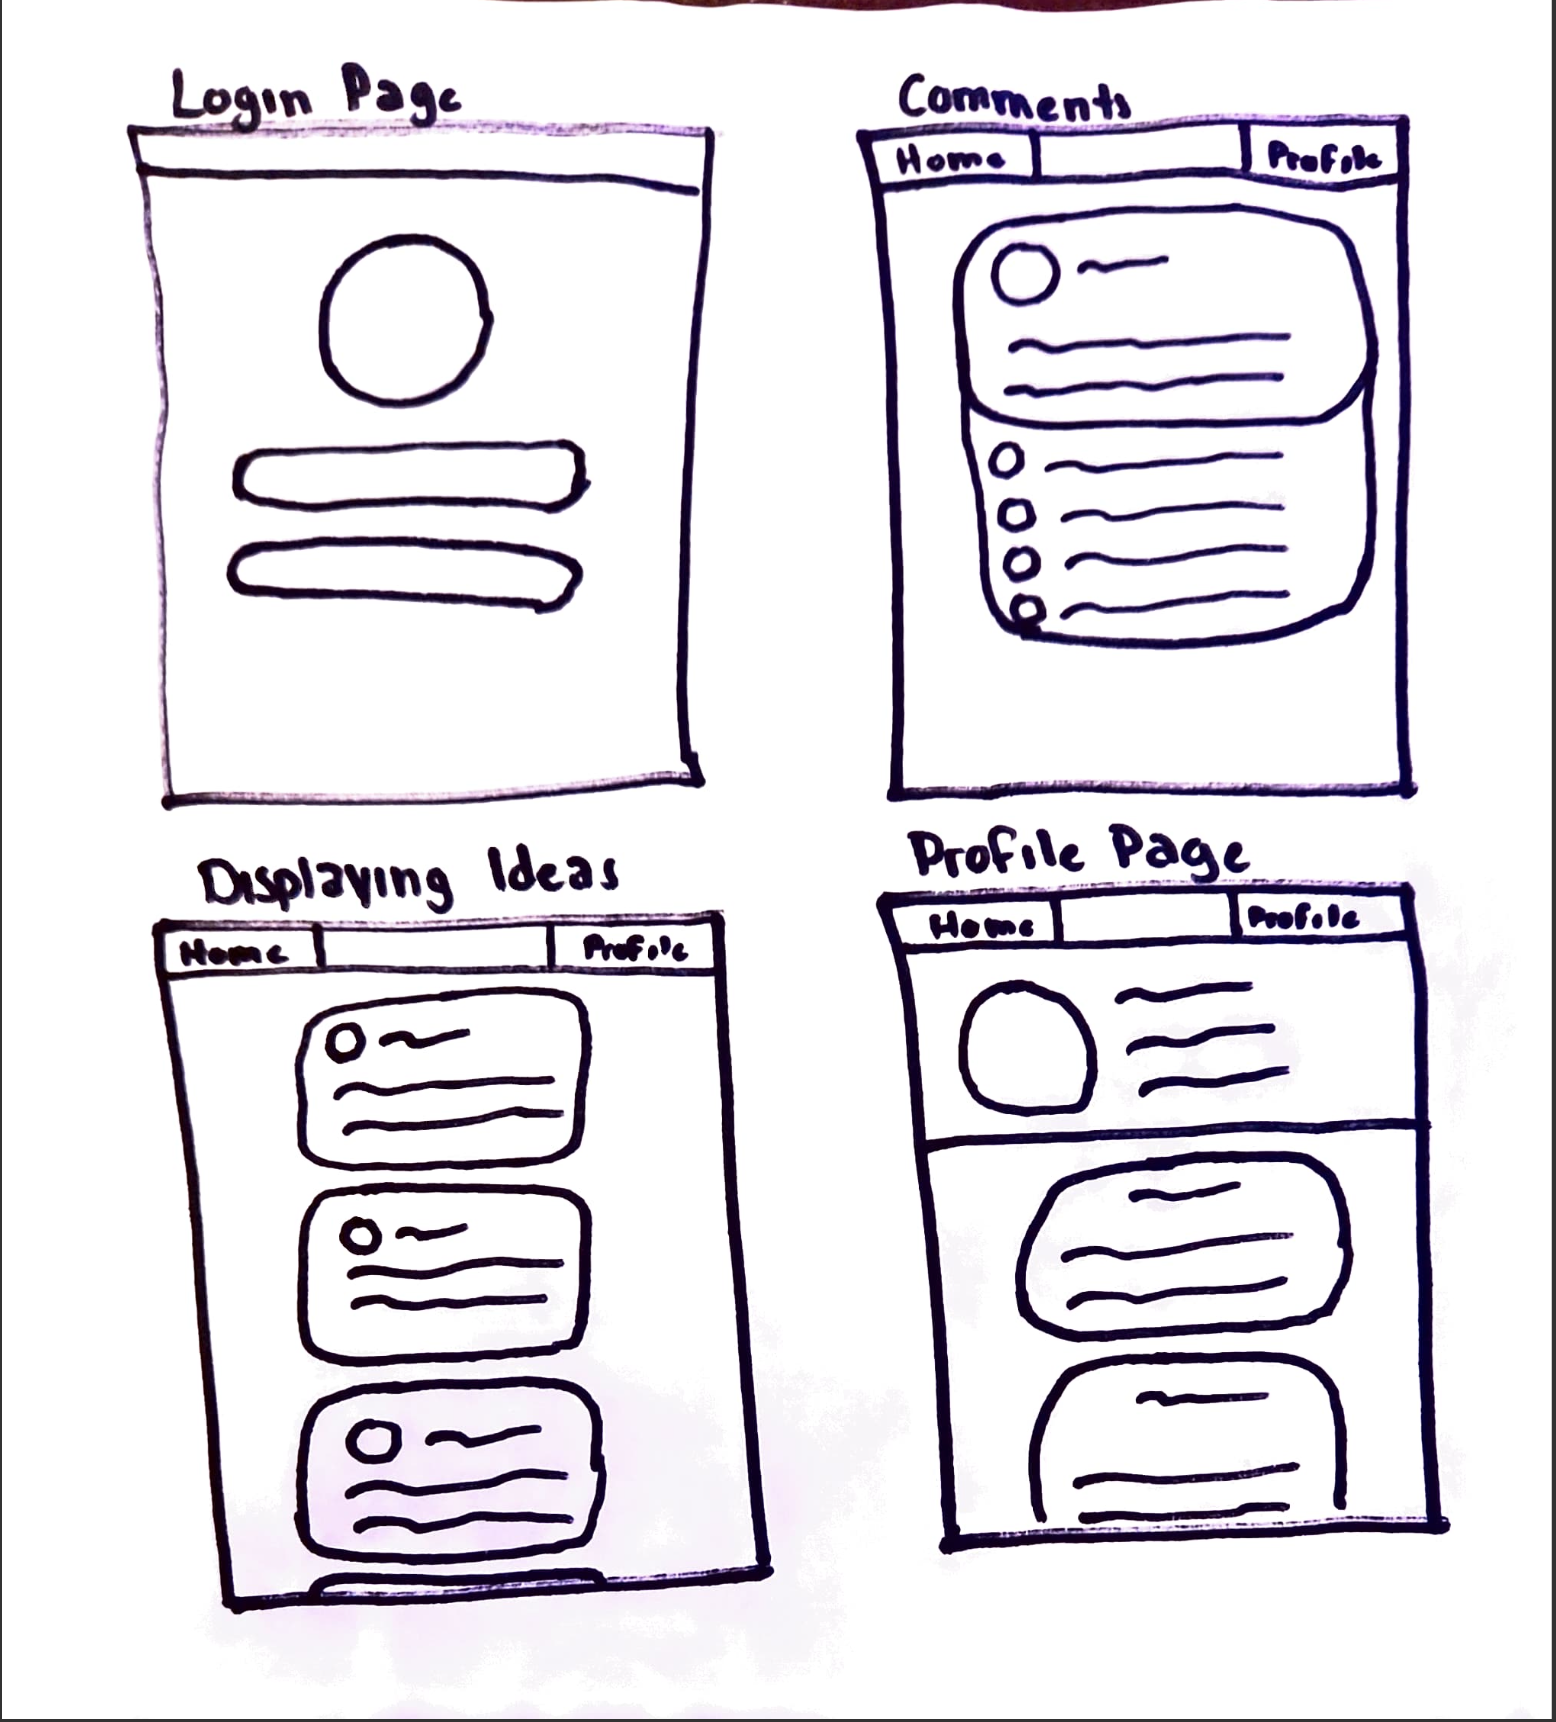 Login Page
Comments
Home Profile
Displaying Ideas
Home Profile
Profile Page
Home Profile